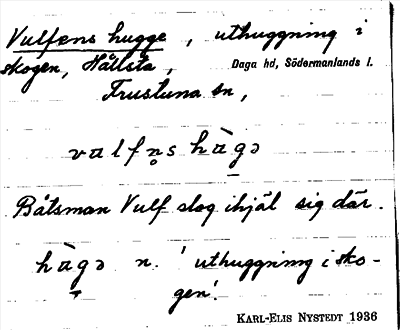 Vulfens hugge, uthuggning i
skogen, Hållsta,
Daga hd, Södermanlands l.
Frustuna sn,
valfn̥s hàgə
Båtsman Vulf slog ihjäl sig där.
hàgə n. 'uthuggning i sko-
gen'.
KARL-ELIS NYSTEDT 1936